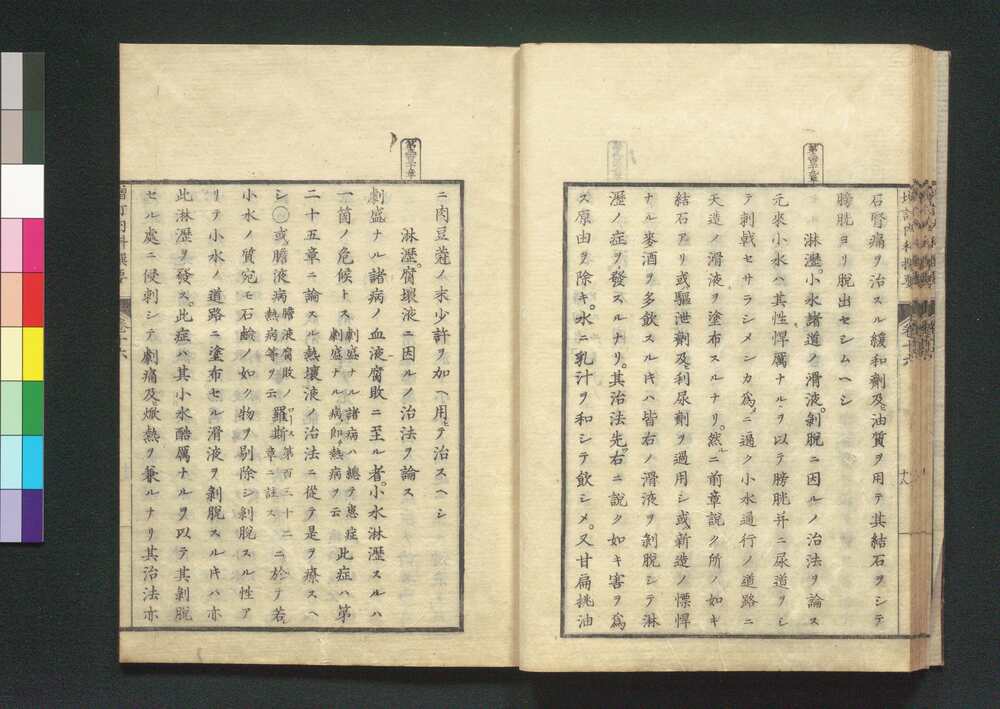 石腎痛ヲ治スル緩和劑及。油質ヲ用テ其結石ヲシテ
膀胱ヨリ脫出セシムヘシ
淋瀝。小水諸道ノ滑液。剝脫ニ因ルノ治法ヲ論ス
元來小水ハ其性悍厲ナルヲ以テ膀胱幷ニ尿道ヲシ
テ刺戟セサラシメンカ爲メニ遍ク小水通行ノ道路ニ
天造ノ滑液ヲ塗布スルナリ。然ルニ前章說ク所ノ如キ
結石アリ或ハ驅泄劑及ヒ利尿劑ヲ過用シ或ハ新造ノ慓悍
ナル麥酒ヲ多飮スルキハ皆右ノ滑液ヲ剝脫シテ淋
瀝ノ症ヲ發スルナリ。其治法先。右ニ說ク如キ害ヲ爲
ス原由ヲ除キ。水ニ乳汁ヲ和シテ飮シメ。又甘扁挑油
ニ肉豆蔲ノ末少許ヲ加ヘ用テ治スヘシ
淋瀝。腐壞液ニ因ルノ治法ヲ論ス
劇盛ナル諸病ノ血液腐敗ニ至ル者。小水淋瀝スルハ
一箇ノ危候トス 劇盛ナル諸病ハ總テ患症劇盛ナル病即チ熱病ヲ云 此症ハ第
二十五章ニ論スル熱壞液ノ治法ニ從テ是ヲ療スヘ
シ○或ハ膽液病 膽液腐敗ノ熱病等ヲ云 羅斯 第百三十二章ニ註ス ニ於テ若
小水ノ質宛モ石鹼ノ如ク物ヲ剔除シ剝脫スルノ性ア
リテ小水ノ道路ニ塗布セル滑液ヲ剝脫スルキハ亦
此淋瀝ヲ發ス。此症ハ其小水酷厲ナルヲ以テ其剝脫
セル處ニ侵刺シテ劇痛及。焮熱ヲ兼ルナリ其治法亦
增訂內科撰要
卷十六